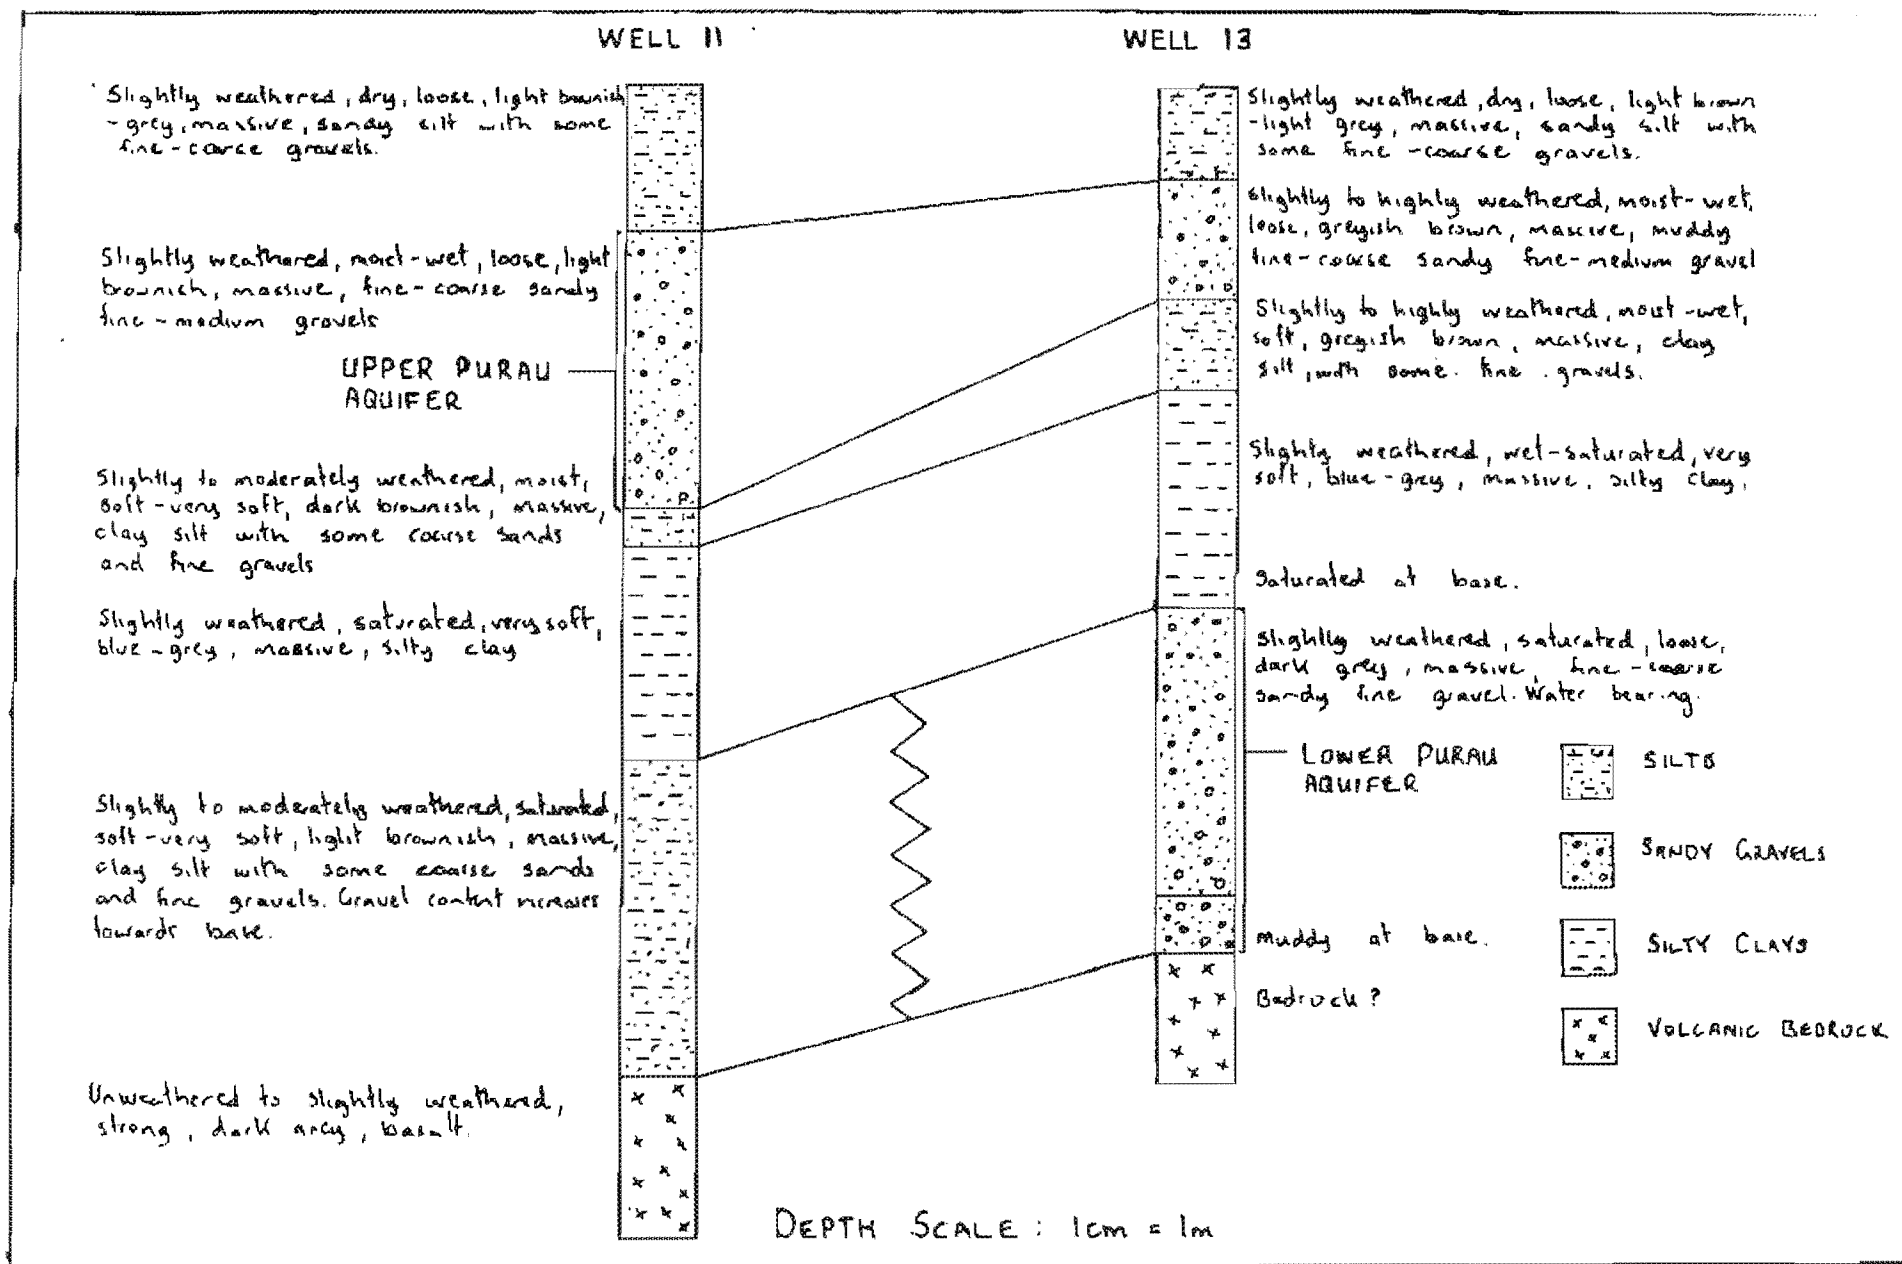 WELL 11
Slightly weathered, dry, loose, light brownish
-grey, massive, sandy silt with some
fine-coarse gravels.
Slightly weathered, moist-wet, loose, light
brownish, massive, fine-coarse sandy
fine-medium gravels
UPPER PURAU
AQUIFER
Slightly to moderately weathered, moist,
soft-very soft, dark brownish, massive,
clay silt with some coarse sands
and fine gravels
Slightly weathered, saturated, very soft,
blue-grey, massive, silty clay
Slightly to moderately weathered, saturated,
soft-very soft, light brownish, massive,
clay silt with some coarse sands
and fine gravels. Gravel content increases
towards base.
Unweathered to slightly weathered,
strong, dark grey, basalt.
WELL 13
Slightly weathered, dry, loose, light brown
-light grey, massive, sandy silt with
some fine-coarse gravels.
Slightly to highly weathered, moist-wet,
loose, greyish brown, massive, muddy
fine-coarse sandy fine-medium gravel
Slightly to highly weathered, moist-wet,
soft, greyish brown, massive, clay
silt, with some fine gravels.
Slighty weathered, wet-saturated, very
soft, blue-grey, massive, silty clay.
Saturated at base.
Slightly weathered, saturated, loose,
dark grey, massive, fine-coarse
sandy fine gravel. Water bearing.
LOWER PURAU
AQUIFER
Muddy at base.
Bedrock?
SILTS
SANDY GRAVELS
SILTY CLAYS
VOLCANIC BEDROCK
DEPTH SCALE: 1cm = 1m